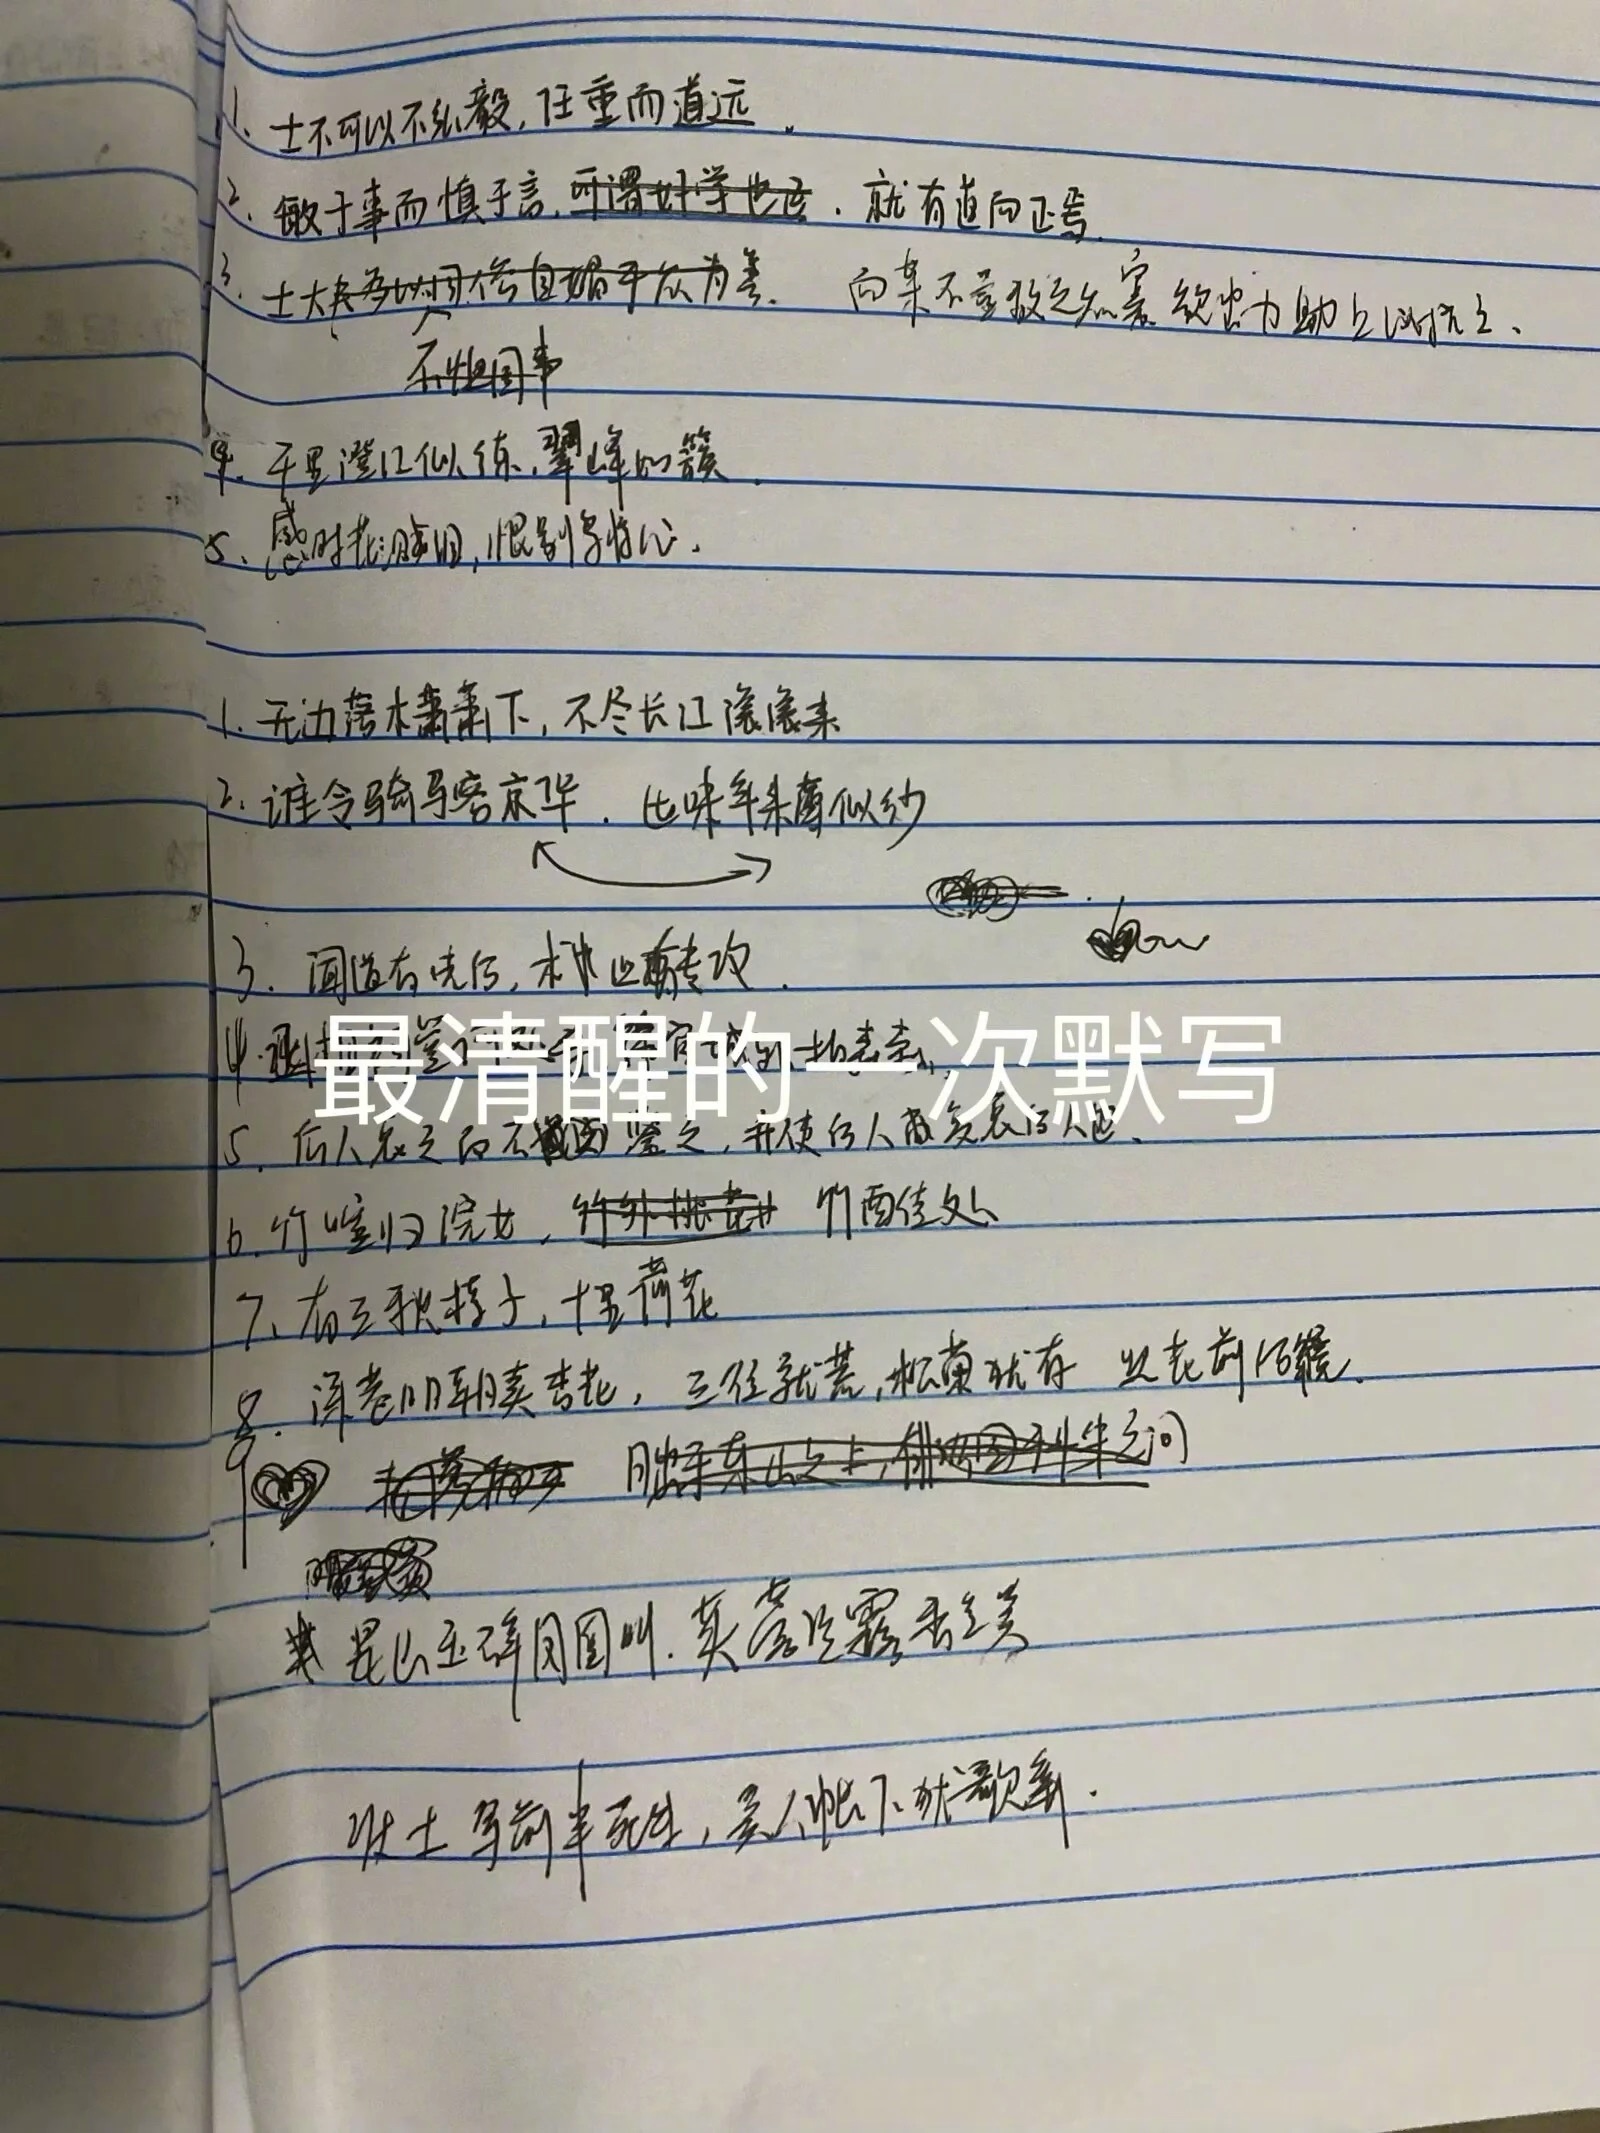 1. 士不可以不弘毅,任重而道远.
2. 敏于事而慎于言,可谓好学也 . 就有道而正焉.
3. 士大夫多以国俗自媚于众为善. 而某不量敌之众寡 欲出力助上以抗之.
不恤国事
4. 千里澄江似练,翠峰如簇.
5. 感时花溅泪,恨别鸟惊心.
1. 无边落木萧萧下,不尽长江滚滚来
2. 谁令骑马客京华. 世味年来薄似纱
3. 闻道有先后,术业有专攻.
最清醒的一次默写
5. 后人哀之而不鉴之,并使后人而复哀后人也.
6. 竹喧归浣女, 竹外桃花 竹西佳处
7. 有三秋桂子,十里荷花
8. 深巷明朝卖杏花, 三径就荒,松菊犹存
9 月出于东山之上,徘徊于斗牛之间
昆山玉碎凤凰叫. 芙蓉泣露香兰笑
壮士军前半死生,美人帐下犹歌舞.